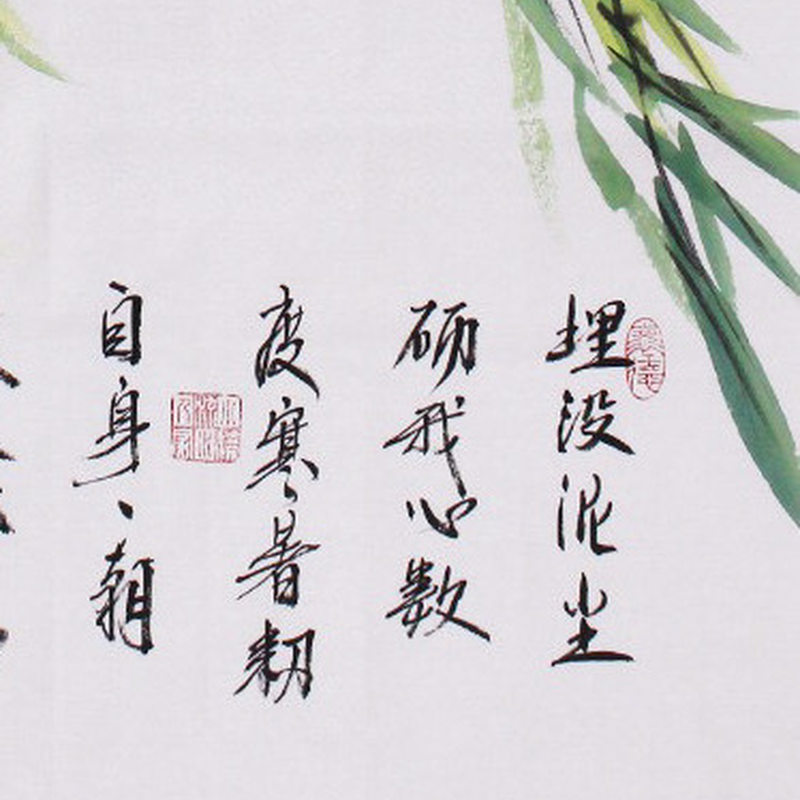 埋没泥尘
砺我心数
度寒暑籾
自身、朝